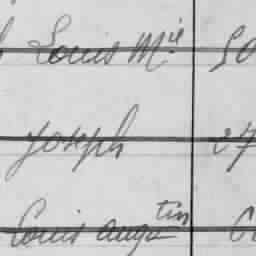 Louis Mie 50
Joseph 27
Louis augustin